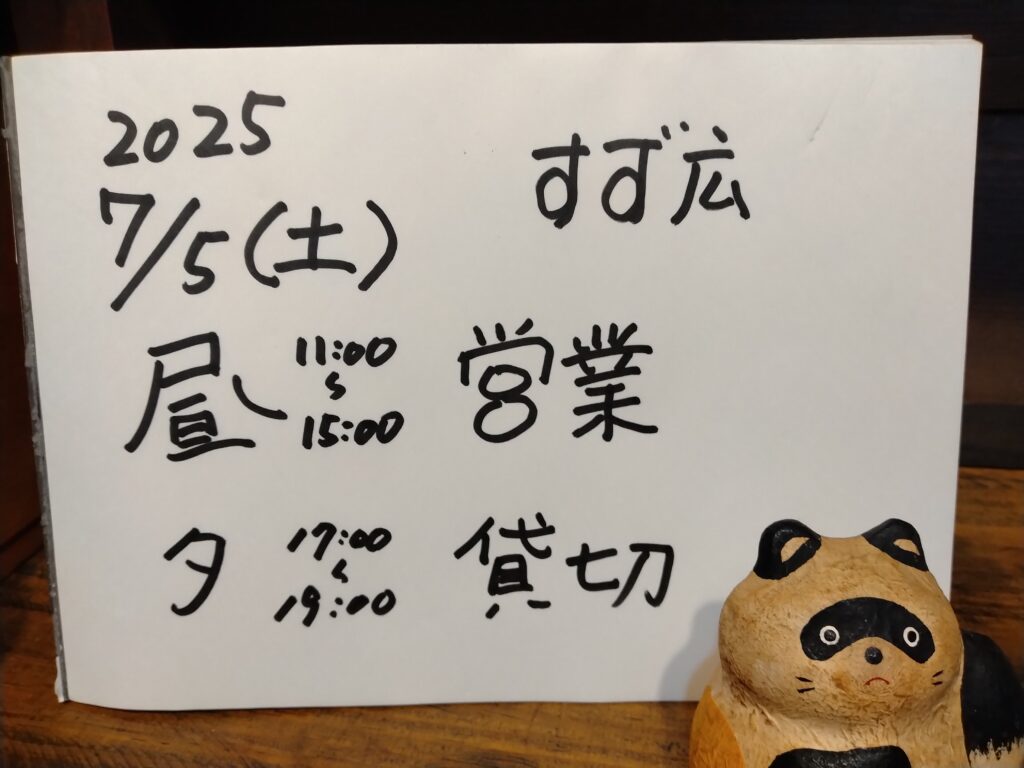 2025
すず広
7/5(土)
昼 11:00〜15:00 営業
夕 17:00〜19:00 貸切